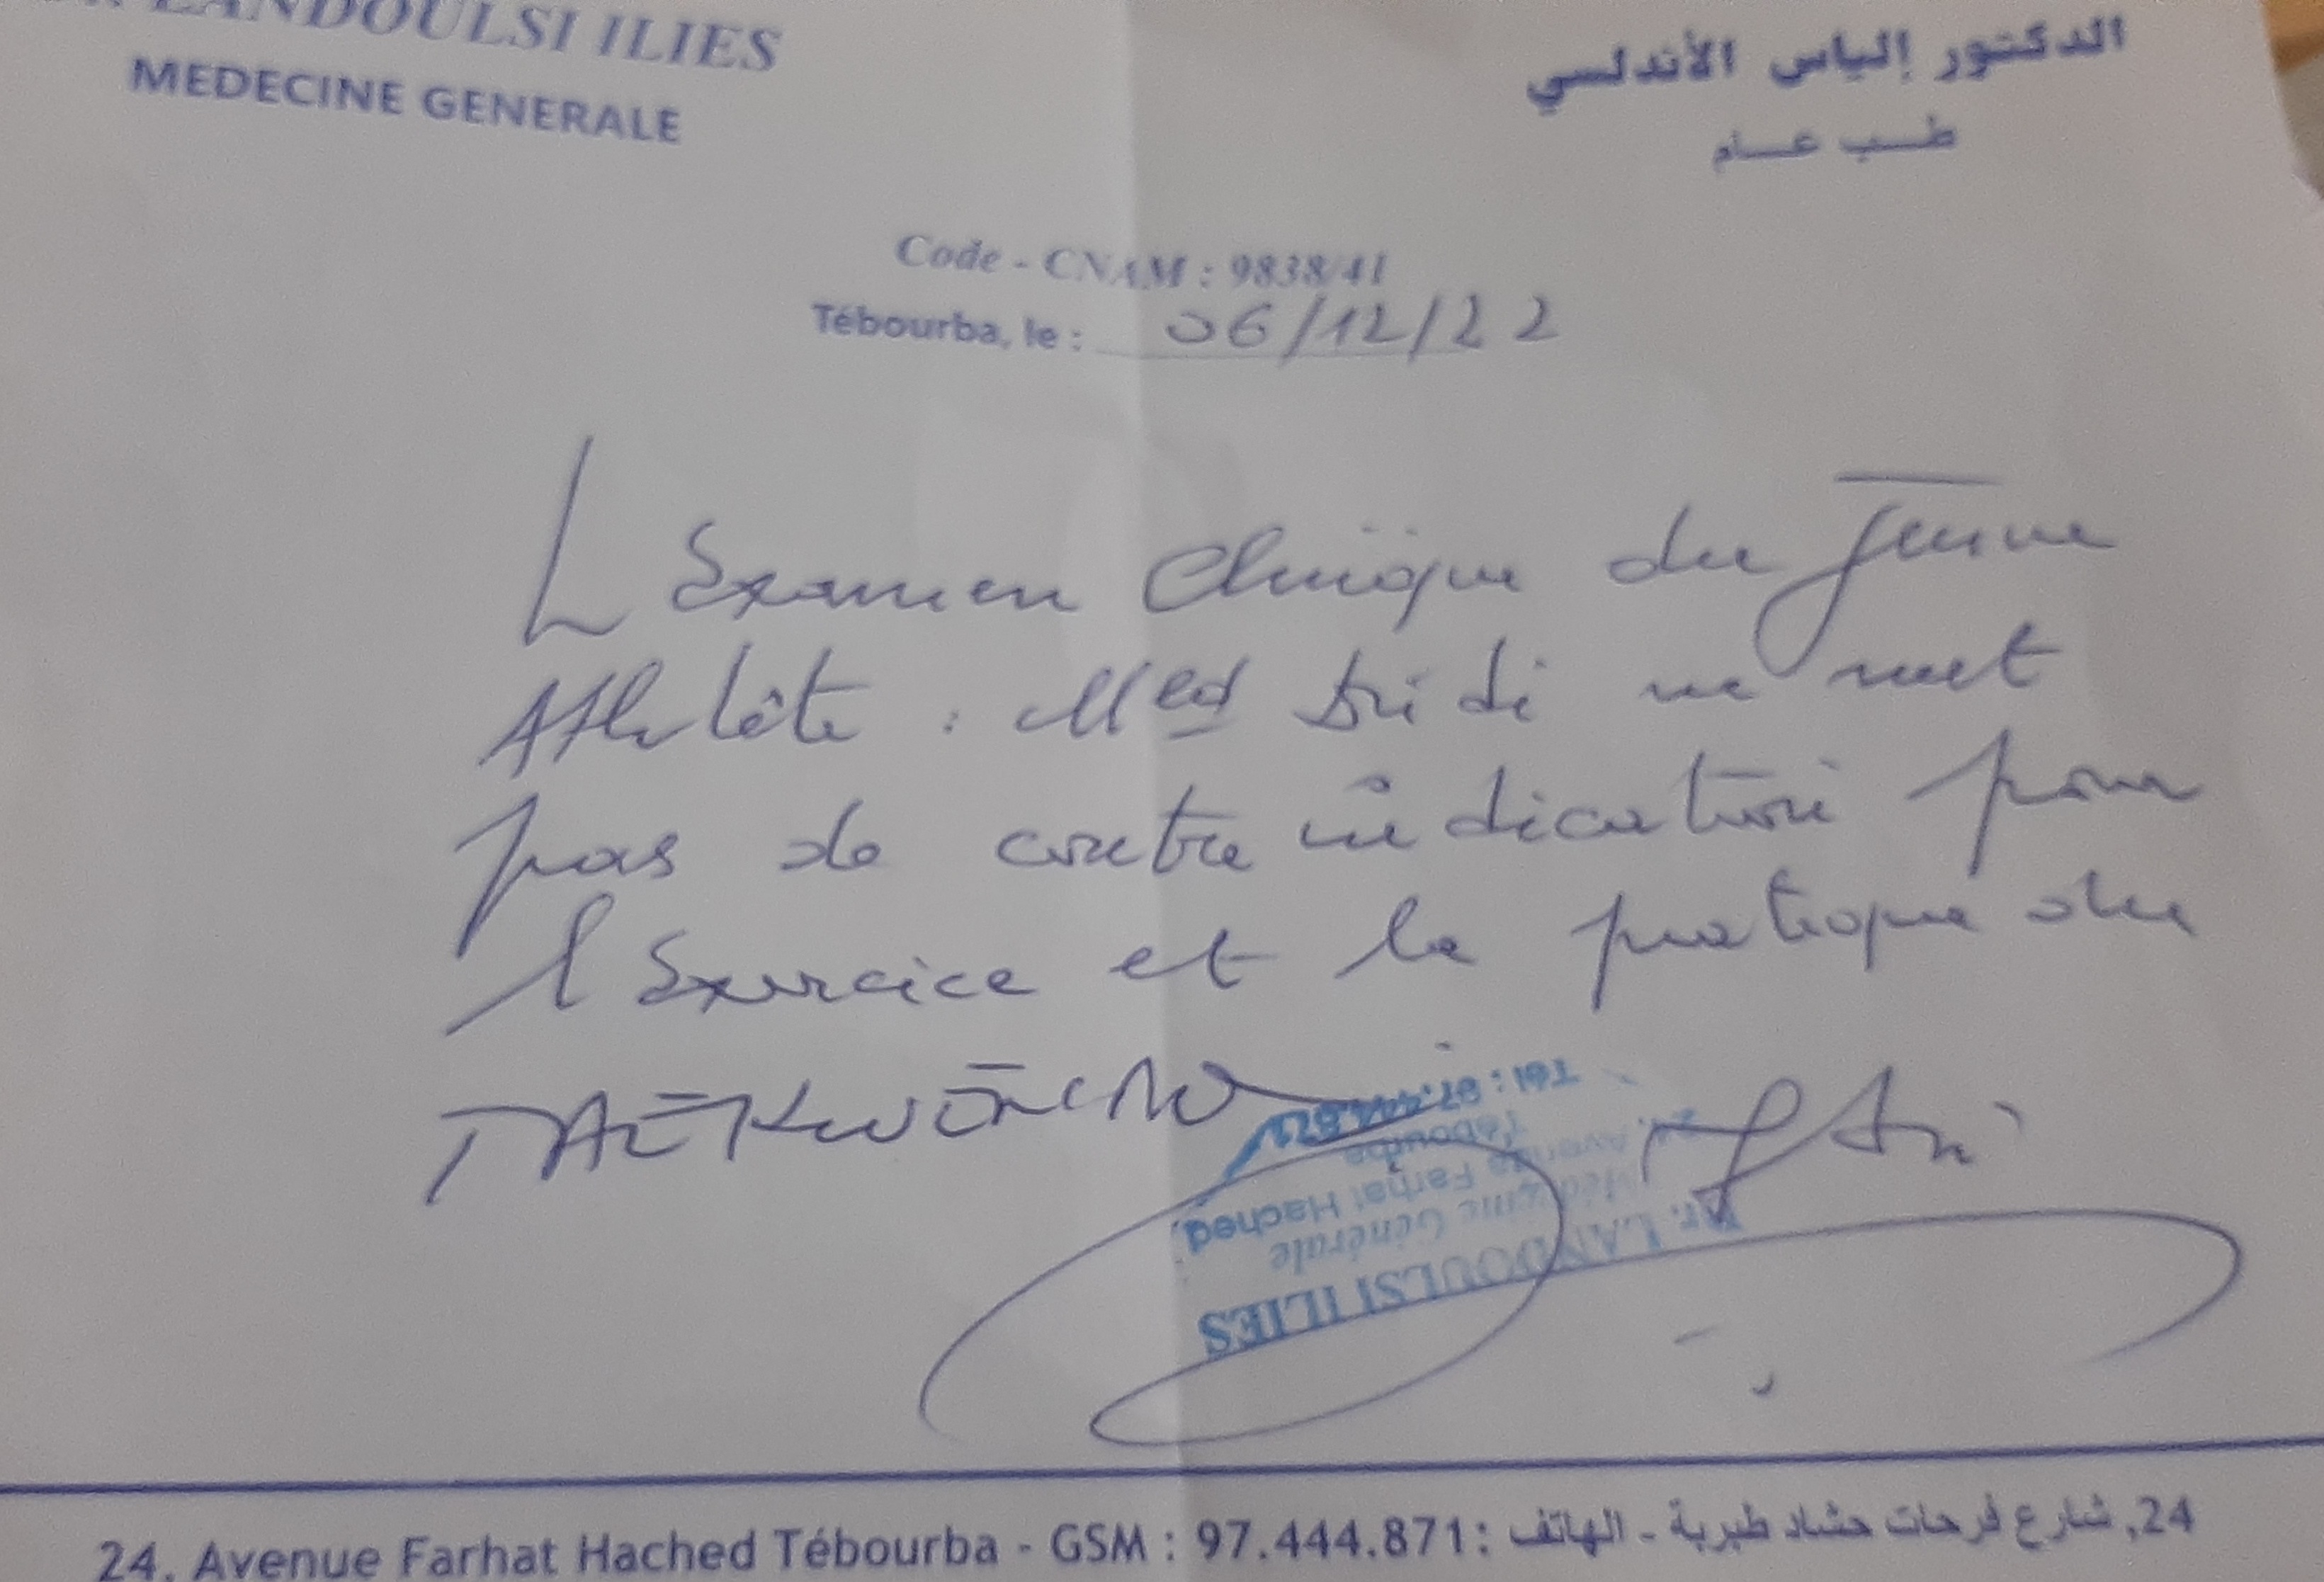 LANDOULSI ILIES
MEDECINE GENERALE
الدكتور إلياس الأندلسي
طب عام
Code - CNAM : 9838/41
Tébourba, le : 06/12/22
L'Examen Clinique du Jeune
Athlète : Med Dridi ne met
pas de contre indication pour
l'Exercice et la pratique du
TAEKWONDO
Dr. LANDOULSI ILIES
Médecine Générale
24, Avenue Farhat Hached
Tébourba
Tél : 97.444.871
24, Avenue Farhat Hached Tébourba - GSM : 97.444.871 : الهاتف - شارع فرحات حشاد طبربة ,24